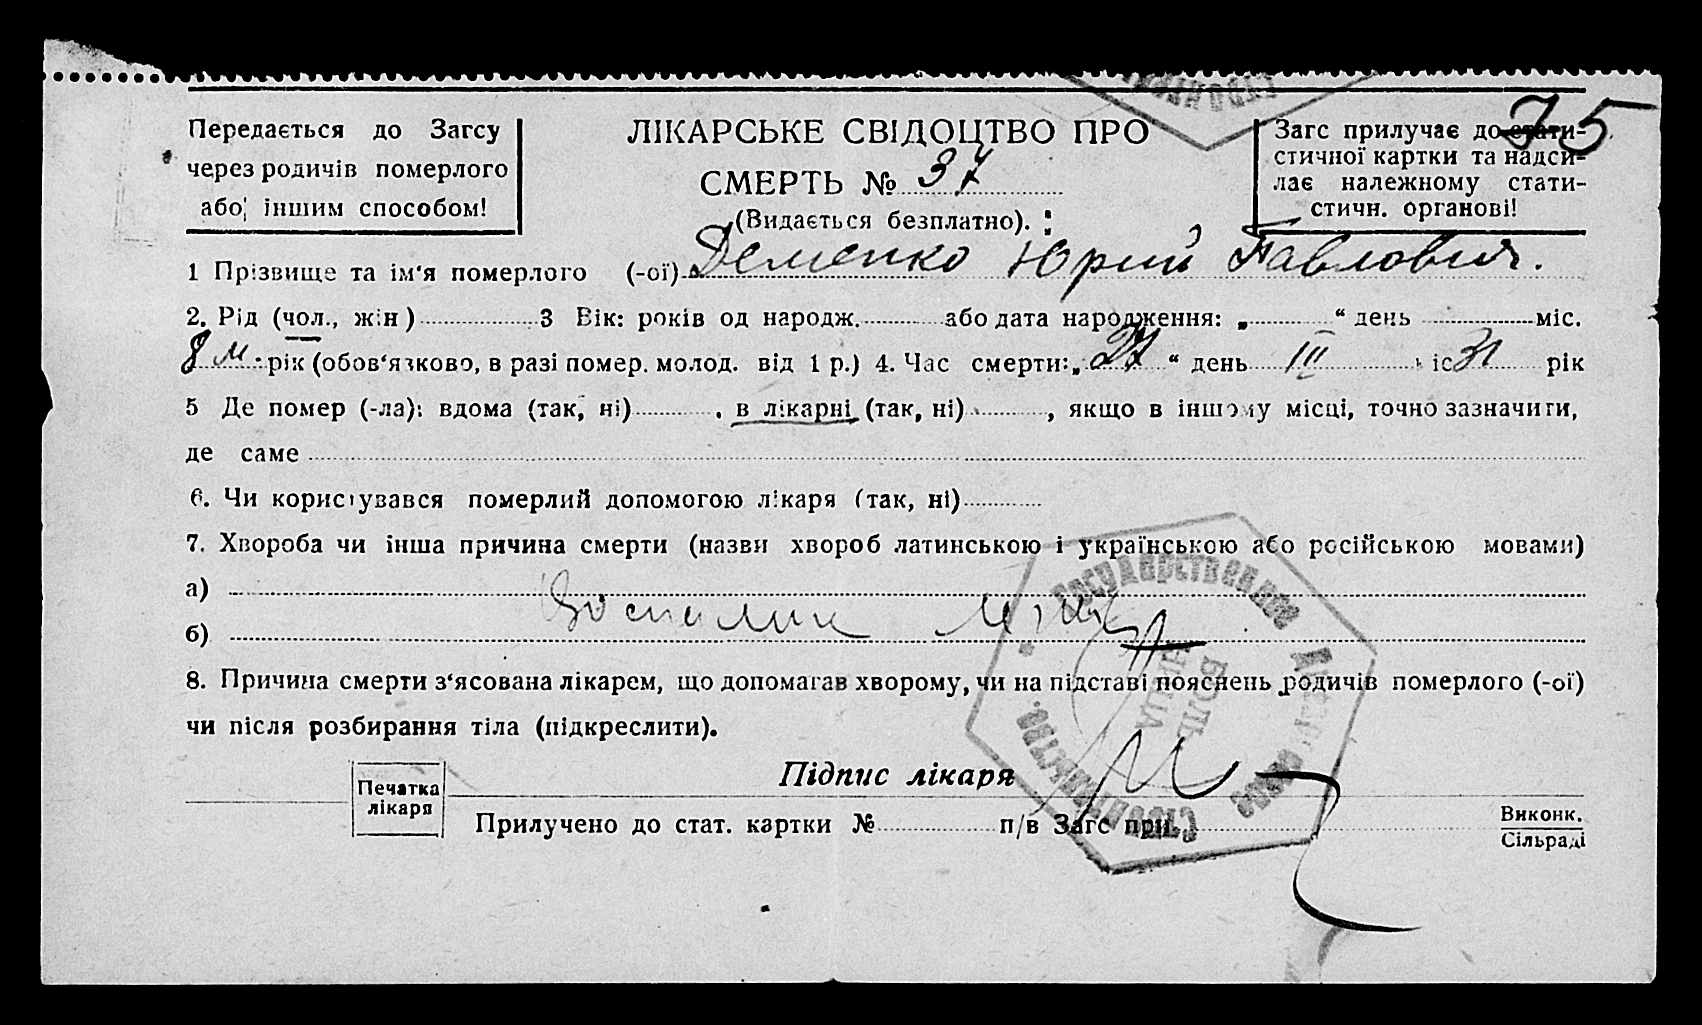 75
Передається до Загсу
через родичів померлого
або іншим способом!
ЛІКАРСЬКЕ СВІДОЦТВО ПРО
СМЕРТЬ № 37
(Видається безплатно).
Загс прилучає до стати-
стичної картки та надси-
лає належному стати-
стичн. органові!
1 Прізвище та ім'я померлого (-ої) Деменко Юрий Павлович.
2. Рід (чол., жін) 3 Вік: років од народж. або дата народження: „ “ день міс.
8 м. рік (обов'язково, в разі помер. молод. від 1 р.) 4. Час смерти: „27“ день III міс 31 рік
5 Де помер (-ла): вдома (так, ні) , в лікарні (так, ні) , якщо в іншому місці, точно зазначити,
де саме
6. Чи користувався померлий допомогою лікаря (так, ні)
7. Хвороба чи інша причина смерти (назви хвороб латинською і українською або російською мовами)
а)
Воспаление
б)
8. Причина смерти з'ясована лікарем, що допомагав хворому, чи на підставі пояснень родичів померлого (-ої)
чи після розбирання тіла (підкреслити).
Підпис лікаря
Печатка
лікаря
Прилучено до стат. картки № п/в Загс при
Виконк.
Сільраді
Государственное
БОЛЬ
НИЦА